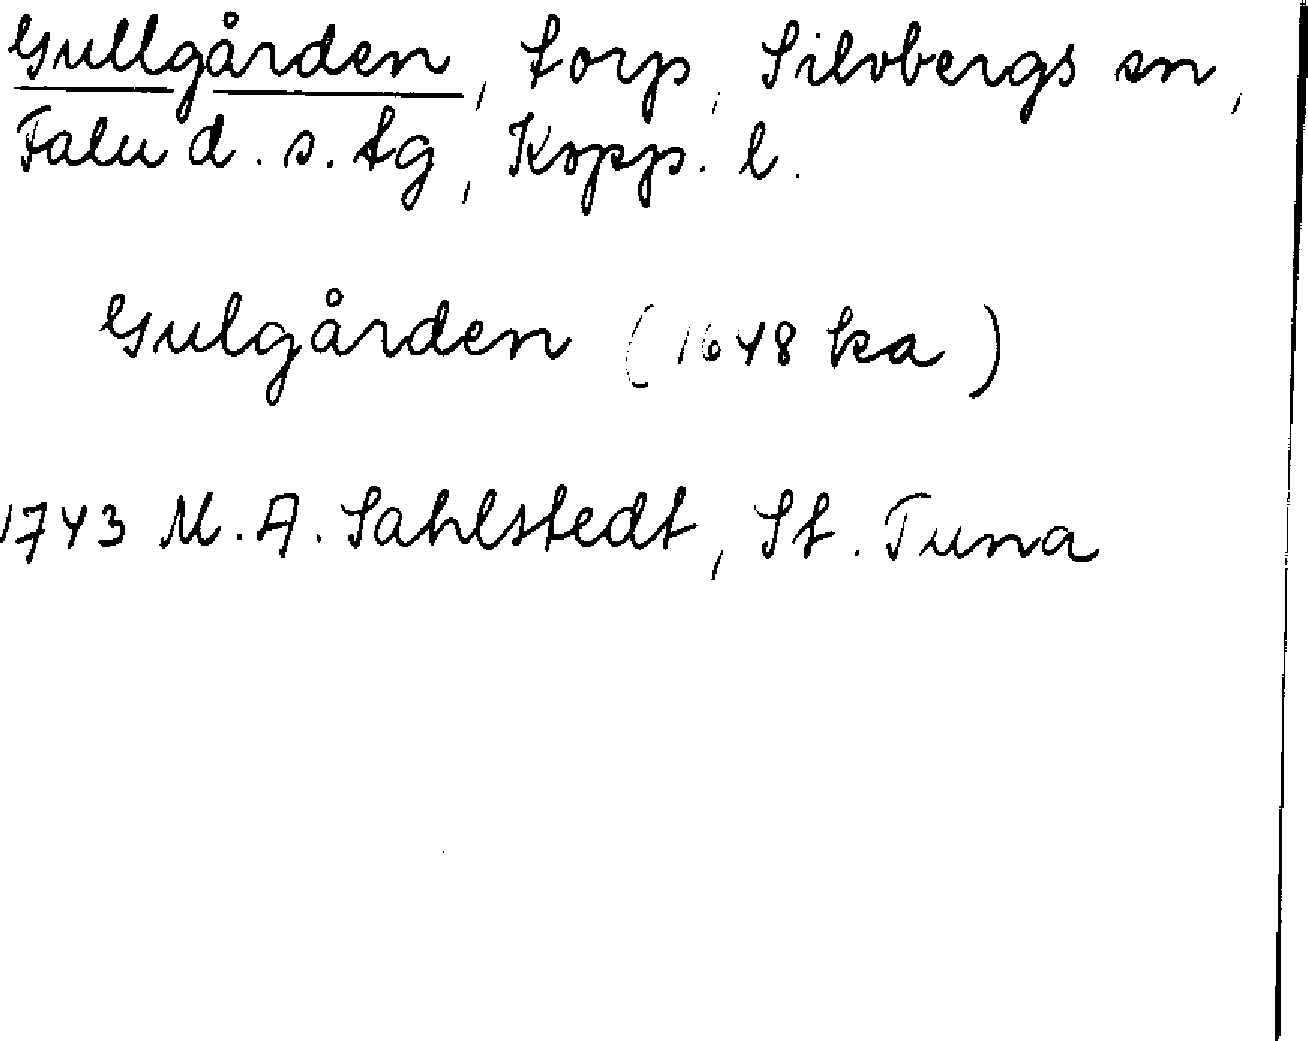 Gullgården, torp, Silvbergs sn,
Falu d. s. tg, Kopp. l.
Gulgården (1648 ka)
1743 M. A. Sahlstedt, St. Tuna